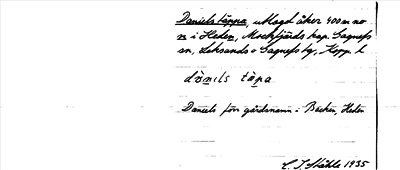 Daniels täppa, utlagd åker 400 m no
n i Heden, Mockfjärds kap. Gagnefs
sn, Leksands o Gagnefs tg, Kopp. l.
dànils täpa
Daniels förr gårdsnamn i Backen, Heden
C. I. Ståhle 1935